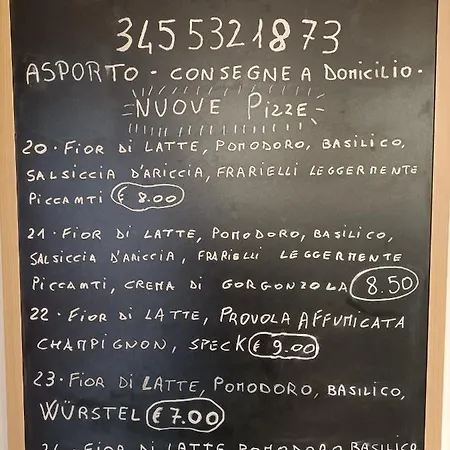 3455321873
ASPORTO - CONSEGNE A DOMICILIO -
NUOVE PIZZE
20. FIOR DI LATTE, POMODORO, BASILICO,
SALSICCIA D'ARICCIA, FRARIELLI LEGGERMENTE
PICCAMTI € 8.00
21. FIOR DI LATTE, POMODORO, BASILICO,
SALSICCIA D'ARICCIA, FRARIELLI LEGGERMENTE
PICCAMTI, CREMA DI GORGONZOLA 8.50
22. FIOR DI LATTE, PROVOLA AFFUMICATA
CHAMPIGNON, SPECK € 9.00
23. FIOR DI LATTE, POMODORO, BASILICO,
WÜRSTEL € 7.00
24. FIOR DI LATTE POMODORO BASILICO